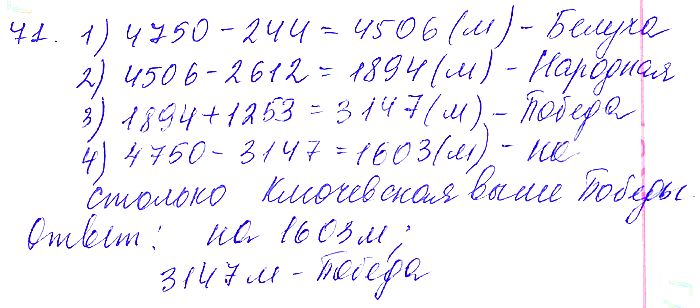 71. 1) 4750 - 244 = 4506 (м) - Белуха
2) 4506 - 2612 = 1894 (м) - Народная
3) 1894 + 1253 = 3147 (м) - Победа
4) 4750 - 3147 = 1603 (м) - на
столько Ключевская выше Победы.
Ответ: на 1603 м;
3147 м - Победа